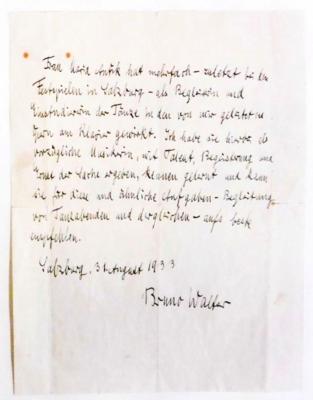 Frau Maria hat mehrfach – zuletzt bei den
Festspielen in Salzburg – als Begleiterin und
Einstudiererin der Tänze in den von mir geleiteten
Opern am Klavier gewirkt. Ich habe sie hierbei als
vorzügliche Musikerin, mit Talent, Begeisterung und
Ernst der Sache ergeben, kennen gelernt und kann
sie für diese und ähnliche Aufgaben – Begleitung
von Tanzabenden und dergleichen – aufs beste
empfehlen.
Salzburg, August 1933
Bruno Walter